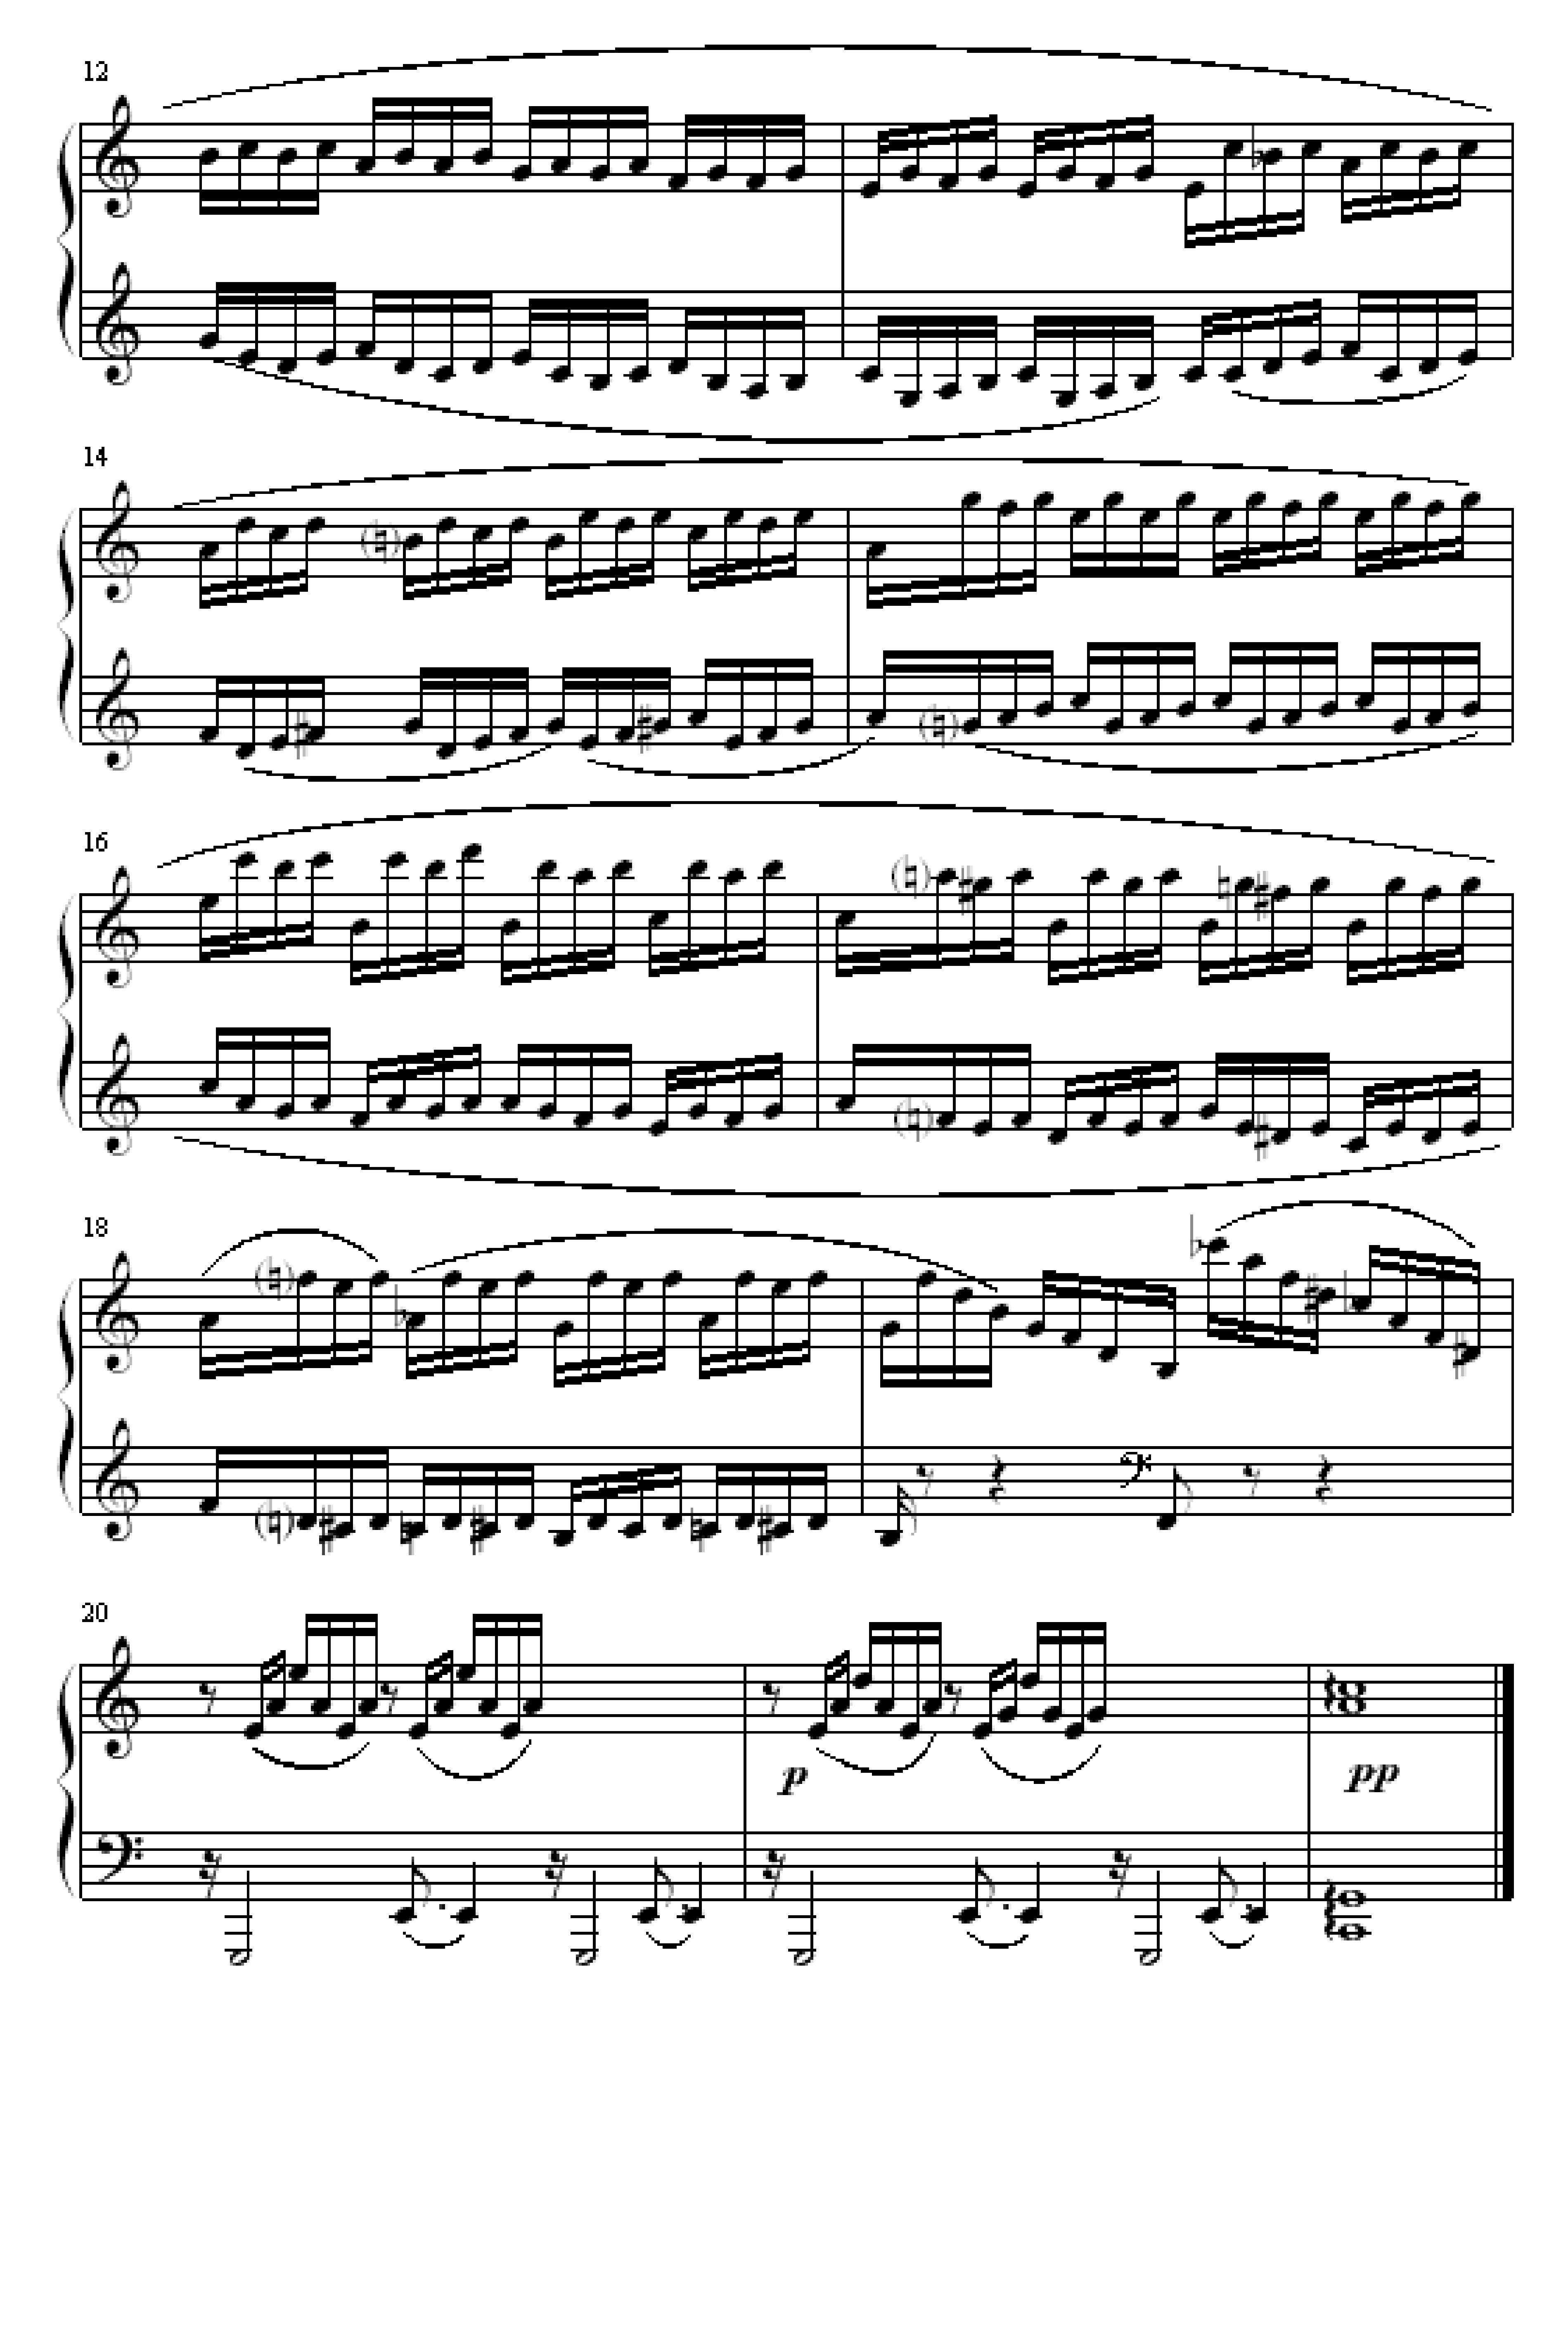 12
14
16
18
20
p
pp